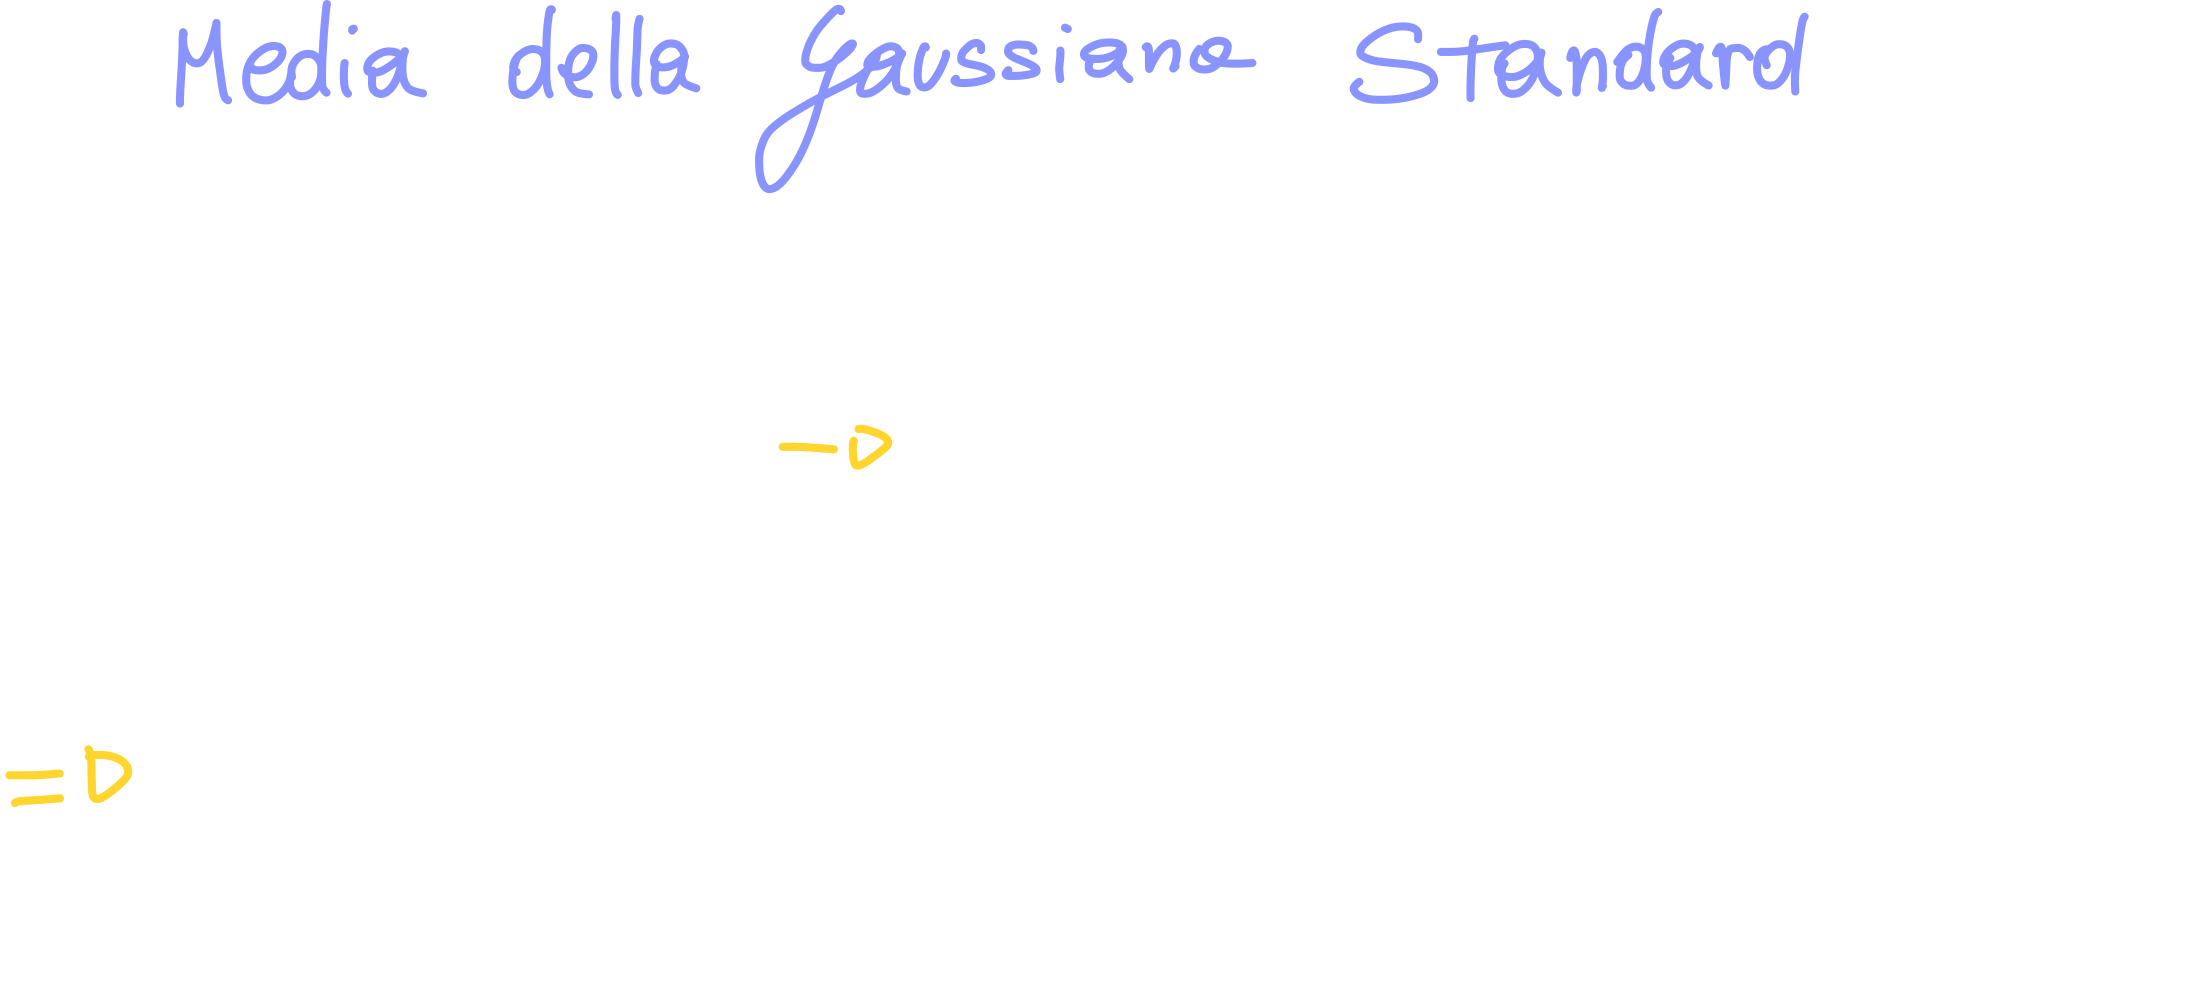 Media della Gaussiana Standard
→
⇒